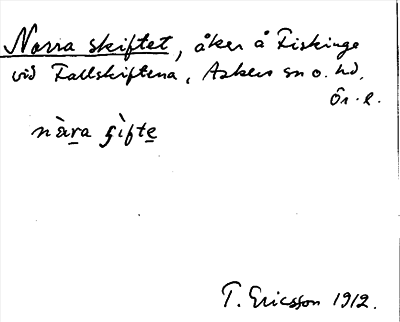 Norra skiftet, åker å Fiskinge
vid Fallskiftena, Askers sn o. hd,
Ör. l.
nàra ʃìfte
T. Ericsson 1912.